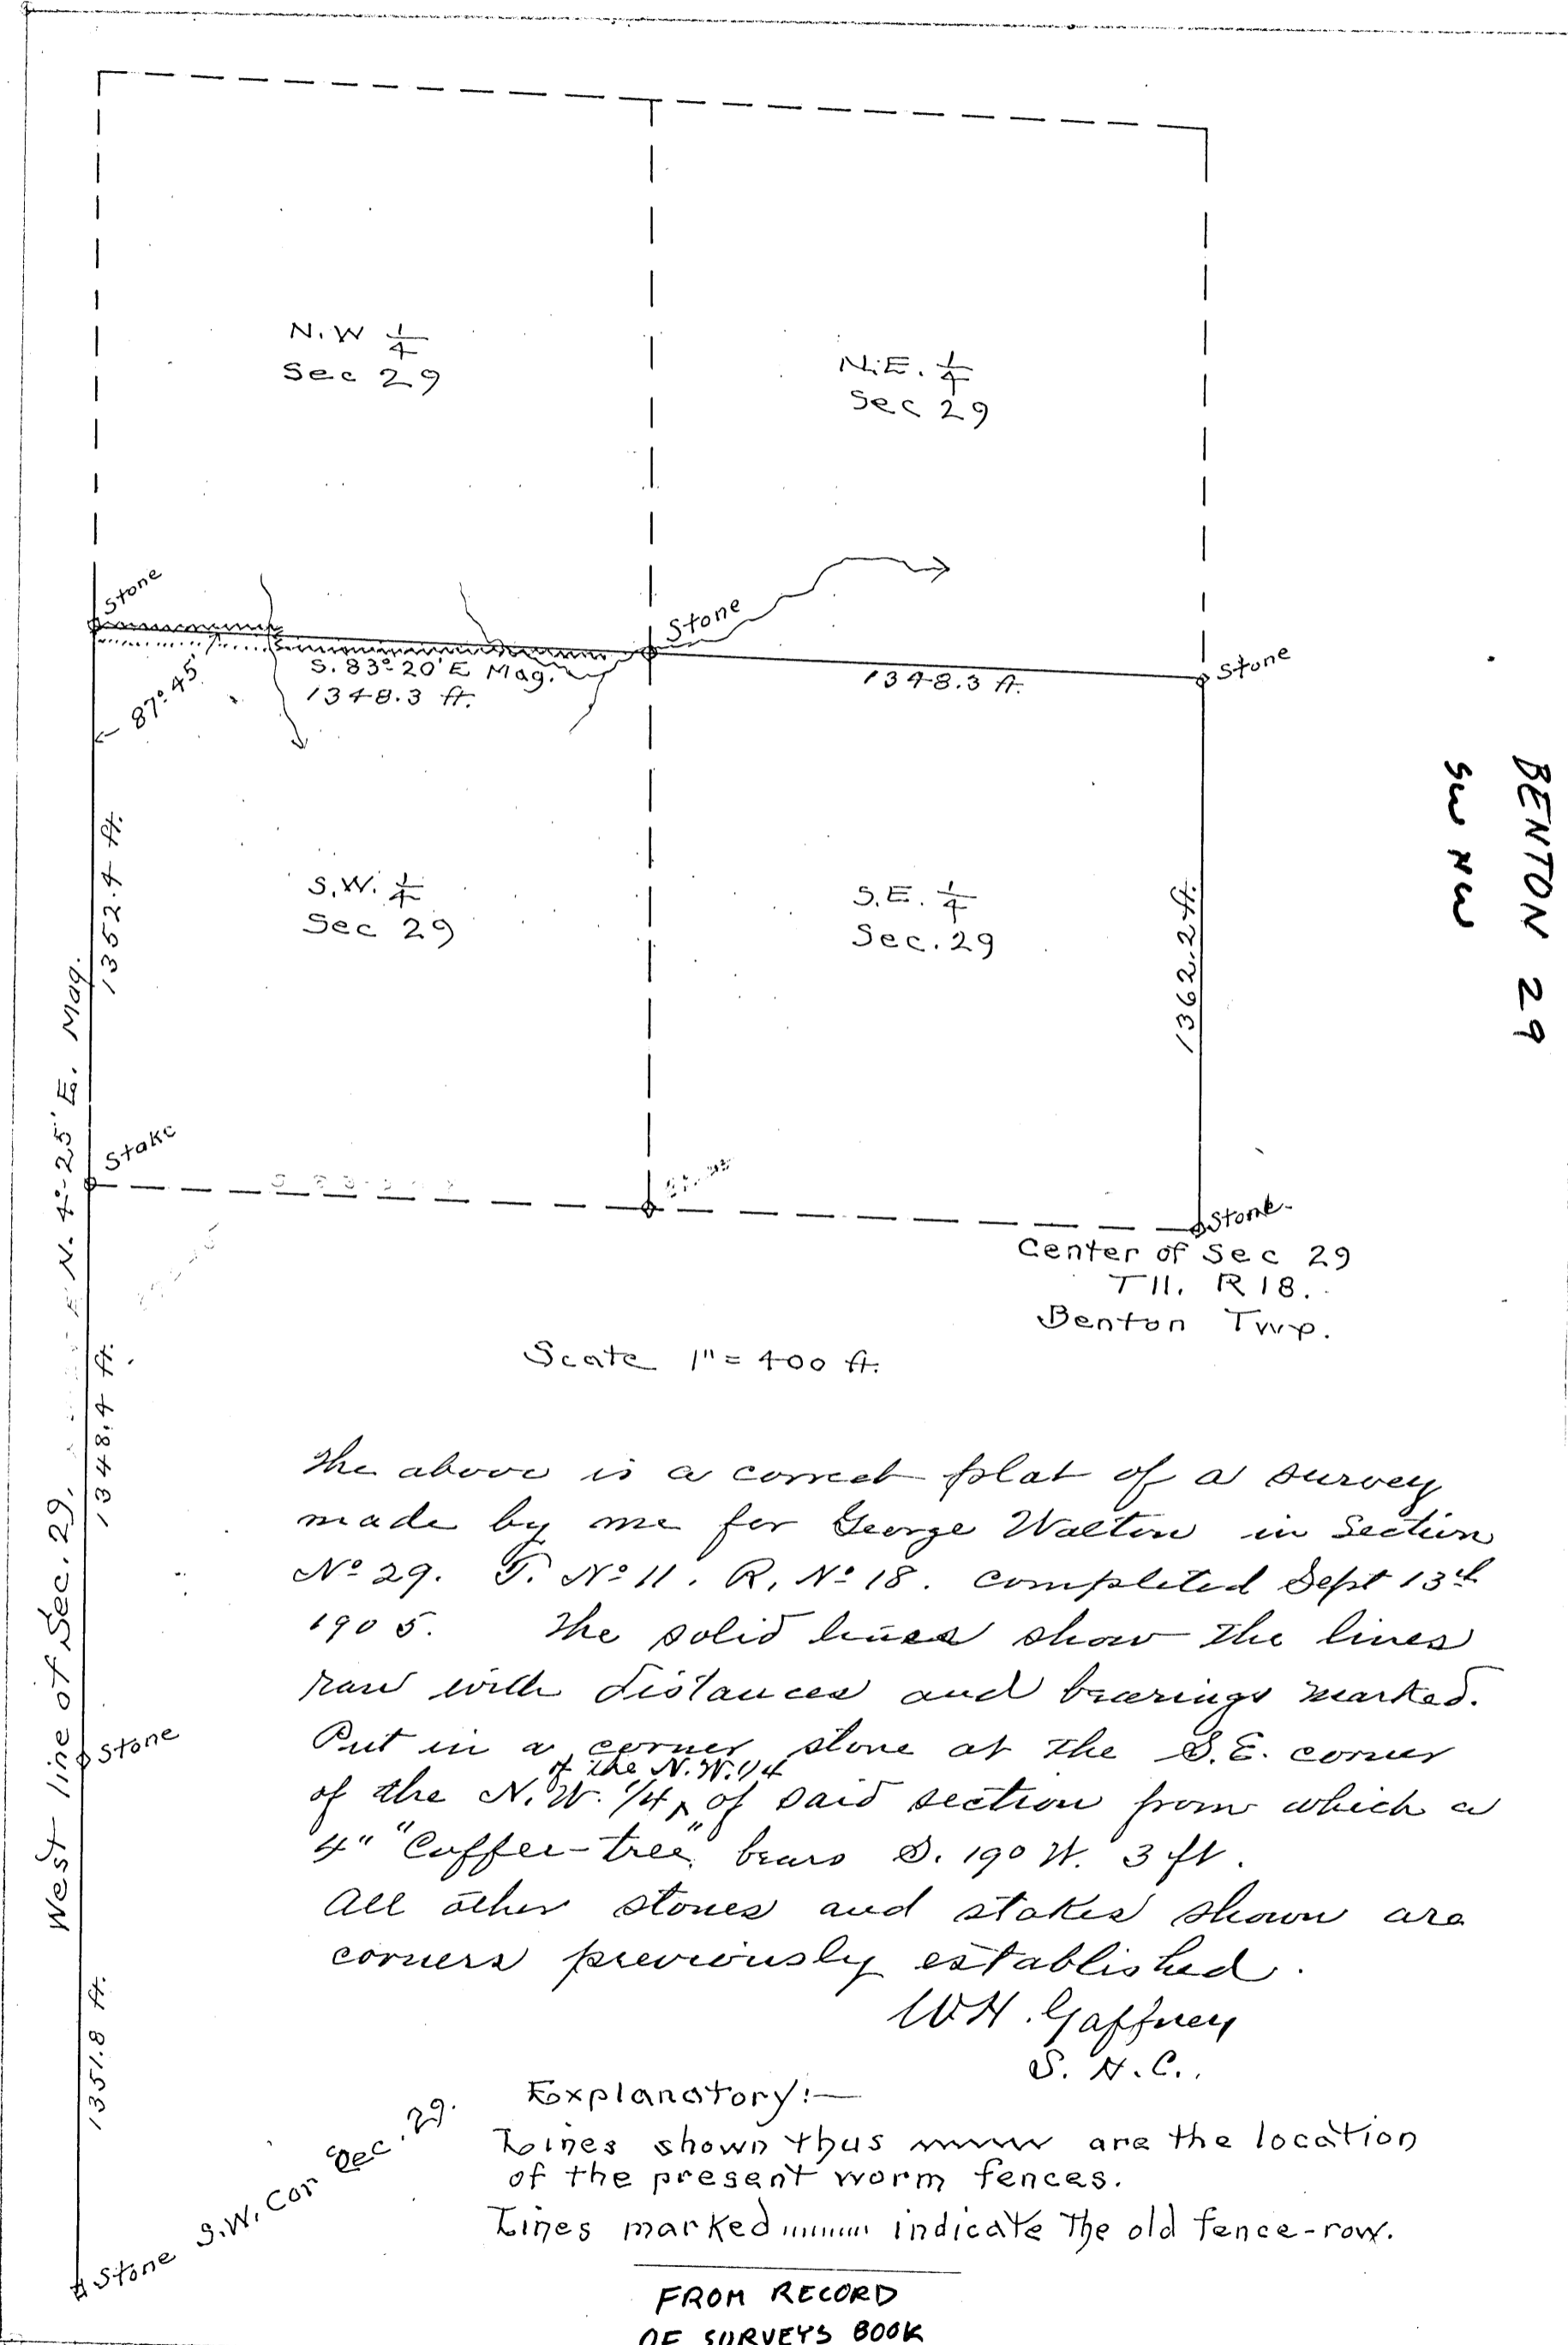 N.W 1/4
Sec 29
N.E. 1/4
Sec 29
Stone
Stone
Stone
S. 83° 20' E Mag.
1348.3 ft.
1348.3 ft.
87° 45'
1352.4 ft.
S.W. 1/4
Sec 29
S.E. 1/4
Sec. 29
1362.2 ft.
BENTON 29
SW NW
N. 4° 25' E. Mag.
Stake
Stone
Center of Sec 29
T11. R18.
Benton Twp.
Scale 1" = 400 ft.
1348.4 ft.
West line of Sec. 29.
Stone
1351.8 ft.
Stone S.W. Cor Sec. 29.
The above is a correct plat of a survey
made by me for George Walton in Section
No 29. T. No 11. R. No 18. completed Sept 13th
1905. The solid lines show the lines
ran with distances and bearings marked.
Put in a corner stone at the S.E. corner
of the N.W. 1/4
of the N.W. 1/4 ‸ of said section from which a
4" "Coffee-tree" bears S. 190 W. 3 ft.
All other stones and stakes shown are
corners previously established.
W H. Gaffney
S. N. C..
Explanatory:—
Lines shown thus are the location
of the present worm fences.
Lines marked indicate the old fence-row.
FROM RECORD
OF SURVEYS BOOK